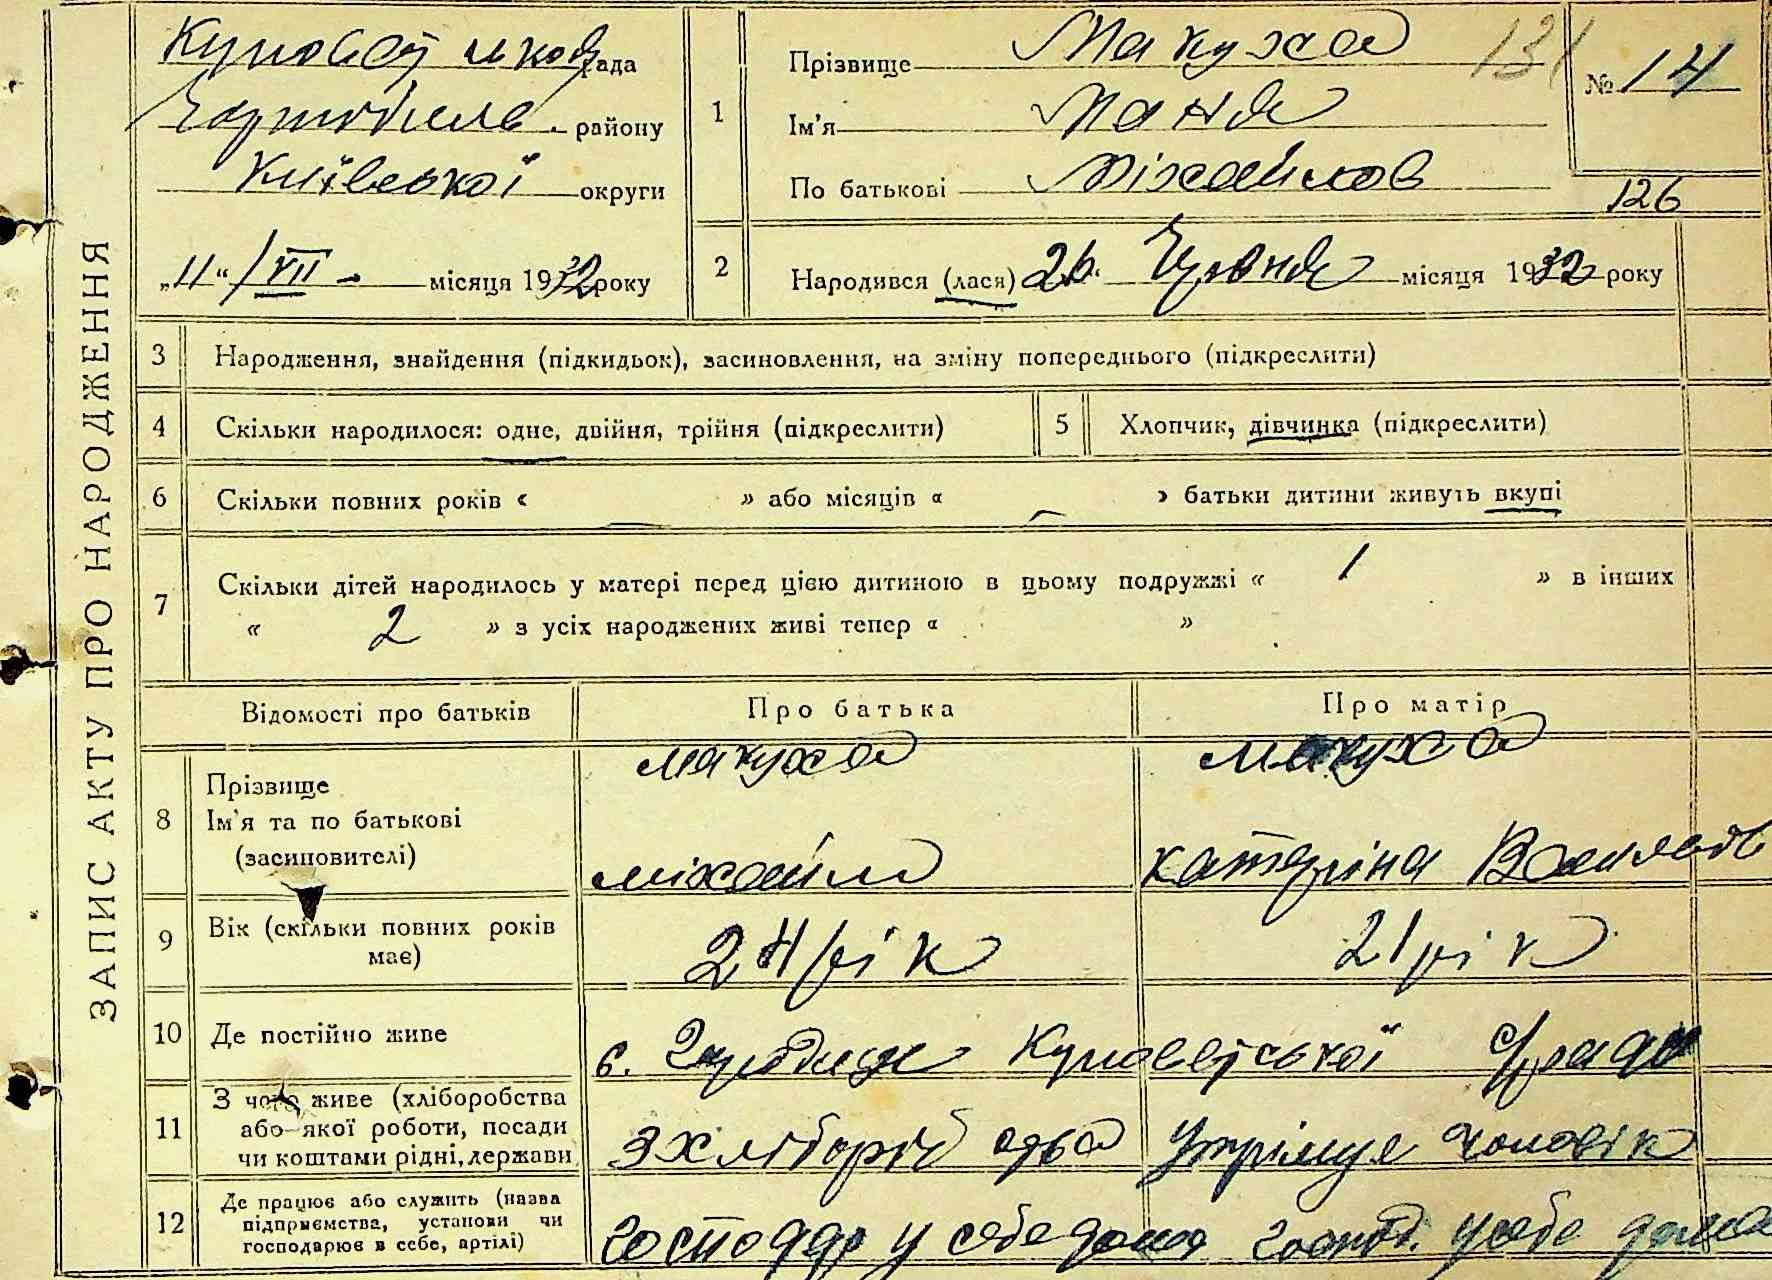 ЗАПИС АКТУ ПРО НАРОДЖЕННЯ
рада
району
Київської округи
„11“ /VII – місяця 1932 року
1
Прізвище Макуха
Ім'я Маня
По батькові Міхайлов
131
№ 14
126
2
Народився (лася) 26. Червня місяця 1932 року
3 Народження, знайдення (підкидьок), засиновлення, на зміну попереднього (підкреслити)
4 Скільки народилося: одне, двійня, трійня (підкреслити)
5 Хлопчик, дівчинка (підкреслити)
6 Скільки повних років « » або місяців « » батьки дитини живуть вкупі
7 Скільки дітей народилось у матері перед цією дитиною в цьому подружжі « 1 » в інших
« 2 » з усіх народжених живі тепер « »
Відомості про батьків
Про батька
Про матір
8 Прізвище
Ім'я та по батькові
(засиновителі)
Макуха
Міхайло
Макуха
Катеріна
9 Вік (скільки повних років
має)
24 рік
21 рік
10 Де постійно живе
с.
11 З чого живе (хліборобства
або якої роботи, посади
чи коштами рідні, держави
з хліборобства
утрімує чоловік
12 Де працює або служить (назва
підприємства, установи чи
господарює в себе, артілі)
господар у себе дома
господ. у себе дома